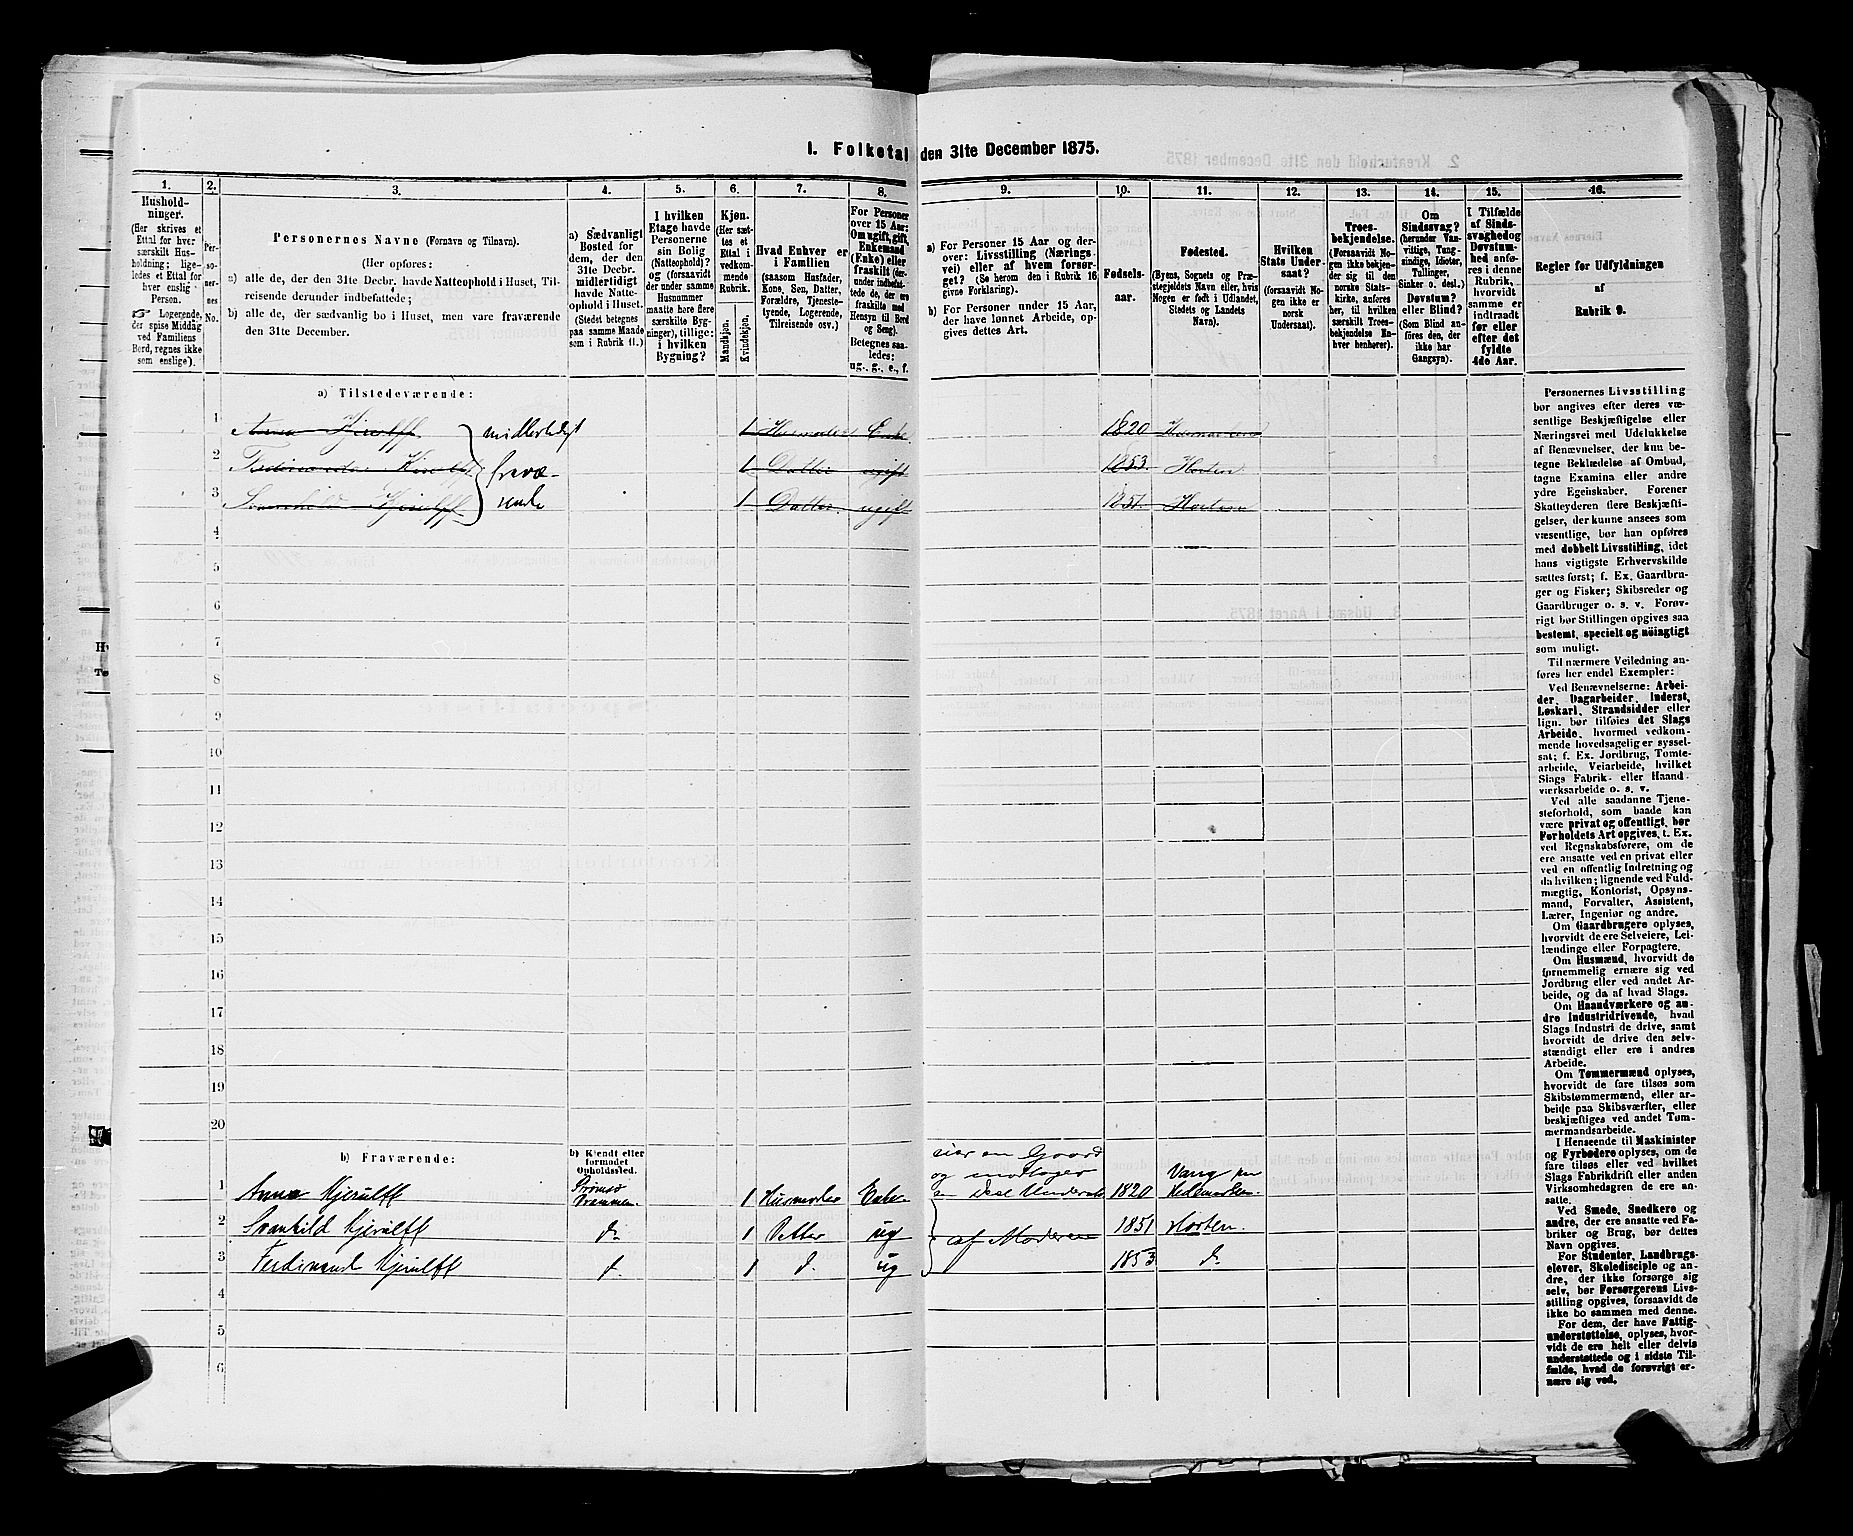 I. Folketal den 31te December 1875.
1.
Hushold-
ninger.
(Her skrives et
Ettal for hver
særskilt Hus-
holdning; lige-
ledes et Ettal for
hver enslig
Person.
☞ Logerende,
der spise Middag
ved Familiens
Bord, regnes ikke
som enslige).
2.
Per-
so-
ner-
nes
No.
3.
Personernes Navne (Fornavn og Tilnavn).
(Her opføres:
a) alle de, der den 31te Decbr. havde Natteophold i Huset, Til-
reisende derunder indbefattede;
b) alle de, der sædvanlig bo i Huset, men vare fraværende
den 31te December.
4.
a) Sædvanligt
Bosted for
dem, der den
31te Decbr.
midlertidigt
havde Natte-
ophold i Huset.
(Stedet betegnes
paa samme Maade
som i Rubrik 11.)
5.
I hvilken
Etage havde
Personerne
sin Bolig
(Natteophold)?
og (forsaavidt
der under samme
Husnummer
maatte høre flere
særskilte Byg-
ninger), tillige:
i hvilken
Bygning?
6.
Kjøn.
(Her sæt-
tes et
Ettal i
vedkom-
mende
Rubrik.
Mandkjøn.
Kvindekjøn.
7.
Hvad Enhver er
i Familien
(saasom Husfader,
Kone, Søn, Datter,
Forældre, Tjeneste-
tyende, Logerende,
Tilreisende osv.)
8.
For Personer
over 15 Aar:
Om ugift, gift,
Enkemand
(Enke) eller
fraskilt (der-
under indbefat-
tede de, der ere
fraskilte med
Hensyn til Bord
og Seng)
Betegnes saa-
ledes:
ug., g., e., f.
9.
a) For Personer 15 Aar og der-
over: Livsstilling (Nærings-
vei) eller af hvem forsør-
get? (Se herom den i Rubrik 16
givne Forklaring).
b) For Personer under 15 Aar,
der have lønnet Arbeide, op-
gives dettes Art.
10.
Fødsels-
aar.
11.
Fødested.
(Byens, Sognets og Præ-
stegjeldets Navn eller, hvis
Nogen er født i Udlandet,
Stedets og Landets
Navn).
12.
Hvilken
Stats Under-
saat?
(forsaavidt No-
gen ikke er
norsk
Undersaat).
13.
Troes-
bekjendelse.
(Forsaavidt No-
gen ikke bekjen-
der sig til den
norske Stats-
kirke, anføres
her, til hvilken
særskilt Troes-
bekjendelse En-
hver henhører).
14.
Om
Sindssvag?
(herunder Van-
vittige, Tung-
sindige, Idioter,
Tullinger,
Sinker o. desl.)
Døvstum?
eller Blind?
(Som Blind an-
føres den, der
ikke har
Gangsyn).
15.
I Tilfælde
af Sinds-
svaghed og
Døvstum-
hed anfø-
res i denne
Rubrik,
hvorvidt
samme er
indtraadt
før eller
efter det
fyldte
4de Aar.
16.
Regler for Udfyldningen
af
Rubrik 9.
a) Tilstedeværende:
1 Anna Kjerulff midlertidigt 1 Husmoder Enke 1820
2 Kjerulff fravæ- 1 Datter ugift 1853 Horten
3 Svanhild Kjerulff ende 1 Datter ugift 1851 Horten
4
5
6
7
8
9
10
11
12
13
14
15
16
17
18
19
20
b) Fraværende:
b) Kjendt eller
formodet
Opholdssted.
eier en Gaard
og modtager
en Deel
1 Anna Kjerulff Drammen 1 Husmoder Enke 1820 Vang paa Hedemarken
2 Svanhild Kjerulff do 1 Datter ug af Moderen 1851 Horten
3 Ferdinand Kjerulff d. 1 d. ug 1853 do
4
5
6
Personernes Livsstilling
bør angives efter deres væ-
sentlige Beskjæftigelse eller
Næringsvei med Udelukkelse
af Benævnelser, der kun be-
tegne Beklædelse af Ombud,
tagne Examina eller andre
ydre Egenskaber. Forener
Skatteyderen flere Beskjæfti-
gelser, der kunne ansees som
væsentlige, bør han opføres
med dobbelt Livsstilling, idet
hans vigtigste Erhvervskilde
sættes først; f. Ex. Gaardbru-
ger og Fisker; Skibsreder og
Gaardbruger o. s. v. Forøv-
rigt bør Stillingen opgives saa
bestemt, specielt og nøiagtigt
som muligt.
Til nærmere Veiledning an-
føres her endel Exempler:
Ved Benævnelserne: Arbei-
der, Dagarbeider, Inderst,
Løskarl, Strandsidder eller
lign. bør tilføies det Slags
Arbeide, hvormed vedkom-
mende hovedsagelig er syssel-
sat; f. Ex. Jordbrug, Tomte-
arbeide, Veiarbeide, hvilket
Slags Fabrik- eller Haand-
værksarbeide o. s. v.
Ved alle saadanne Tjene-
steforhold, som baade kan
være privat og offentligt, bør
Forholdets Art opgives, t. Ex.
ved Regnskabsførere, om de
ere ansatte ved en privat eller
ved en offentlig Indretning og
da hvilken; lignende ved Fuld-
mægtig, Kontorist, Opsyns-
mand, Forvalter, Assistent,
Lærer, Ingeniør og andre.
Om Gaardbrugere oplyses,
hvorvidt de ere Selveiere, Lei-
lændinge eller Forpagtere.
Om Husmænd, hvorvidt de
fornemmelig ernære sig ved
Jordbrug eller ved andet Ar-
beide, og da af hvad Slags.
Om Haandværkere og an-
dre Industridrivende, hvad
Slags Industri de drive, samt
hvorvidt de drive den selv-
stændigt eller ere i andres
Arbeide.
Om Tømmermænd oplyses,
hvorvidt de fare tilsøs som
Skibstømmermænd, eller ar-
beide paa Skibsværfter, eller
beskjæftiges ved andet Tøm-
mermandsarbeide.
I Henseende til Maskinister
og Fyrbødere oplyses, om de
fare tilsøs eller ved hvilket
Slags Fabrikdrift eller anden
Virksomhedsgren de ere an-
satte.
Ved Smede, Snedkere og
andre, der ere ansatte ved Fa-
briker og Brug, bør dettes
Navn opgives.
For Studenter, Landbrugs-
elever, Skoledisciple og an-
dre, der ikke forsørge sig
selv, bør Forsørgerens Livs-
stilling opgives, forsaavidt de
ikke bo sammen med denne.
For dem, der have Fattig-
understøttelse, oplyses, hvor-
vidt de ere helt eller delvis
understøttede og i sidste Til-
fælde, hvad de forøvrigt er-
nære sig ved.